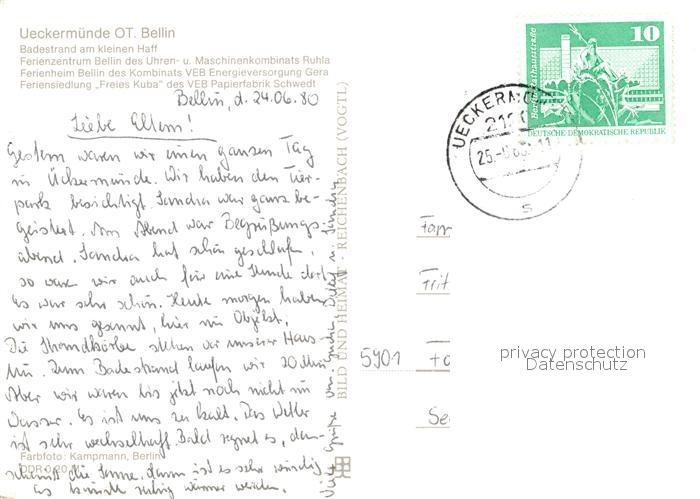 Ueckermünde OT. Bellin
Badestrand am kleinen Haff
Ferienzentrum Bellin des Uhren- u. Maschinenkombinats Ruhla
Ferienheim Bellin des Kombinats VEB Energieversorgung Gera
Feriensiedlung „Freies Kuba" des VEB Papierfabrik Schwedt
Bellin, d. 24.06.80
Liebe Eltern!
Gestern waren wir einen ganzen Tag
in Ückermünde. Wir haben den Tier-
park besichtigt. Sandra war ganz be-
geistert. Am Abend war Begrüßungs-
abend. Sandra hat schön geschlafen,
so waren wir auch für eine Stunde dort.
Es war sehr schön. Heute morgen haben
wir uns gesonnt, hier im Objekt.
Die Strandkörbe stehen vor unserer Haus-
tür. Zum Badestrand laufen wir 20 Min.
Aber wir waren bis jetzt noch nicht im
Wasser. Es ist uns zu kalt. Das Wetter
ist sehr wechselhaft. Bald regnet es, dann
scheint die Sonne, dann ist es sehr windig
Es könnte ruhig wärmer werden.
Viele Grüße von Detlef u. Sandra
Farbfoto: Kampmann, Berlin
DDR 0,20 M
BILD UND HEIMAT · REICHENBACH (VOGTL)
10
DEUTSCHE DEMOKRATISCHE REPUBLIK
UECKERM
25.
S
Fam
5901
privacy protection
Datenschutz